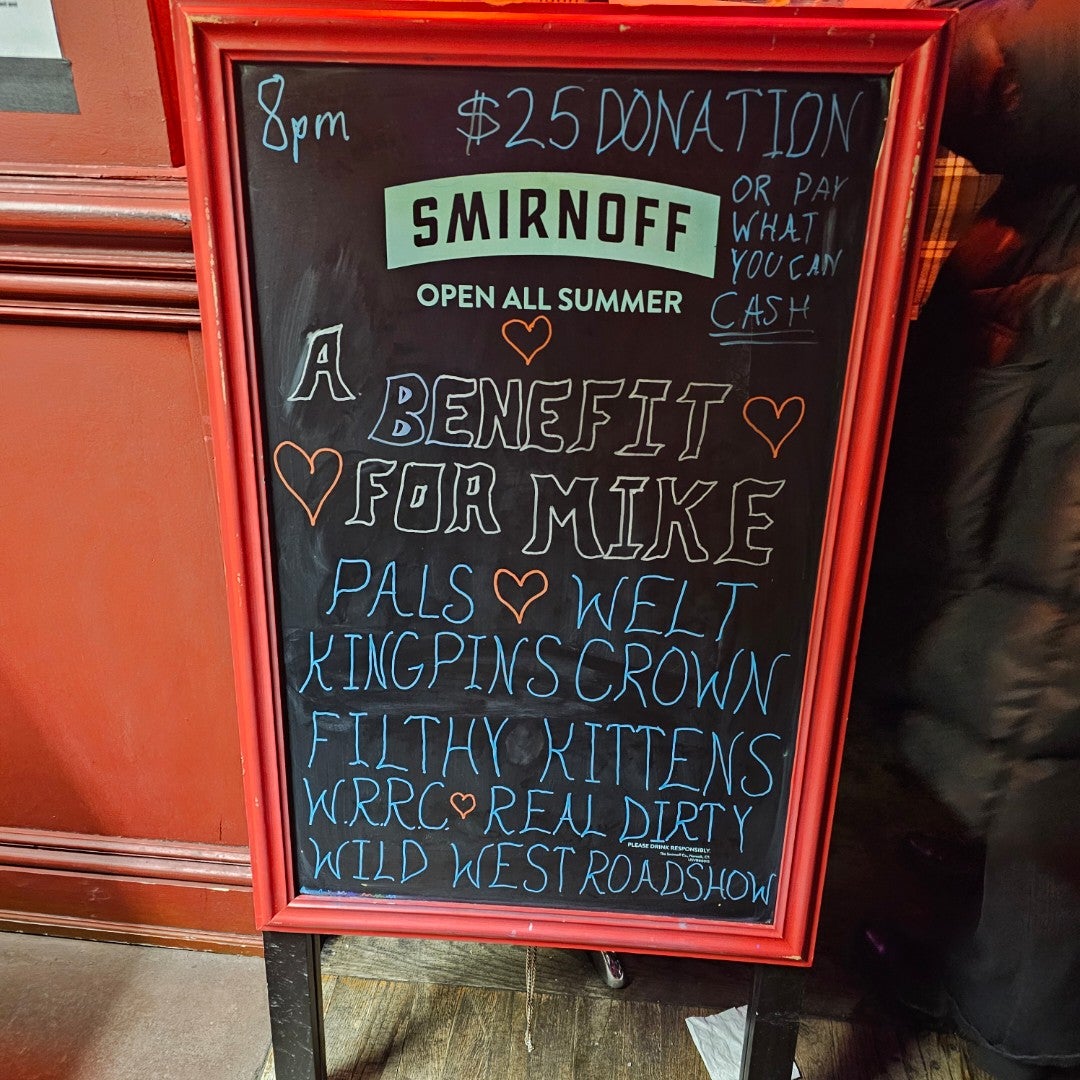 8pm $25 DONATION
OR PAY
WHAT
YOU CAN
CASH
SMIRNOFF
OPEN ALL SUMMER
A
BENEFIT
FOR MIKE
PALS WELT
KINGPINS CROWN
FILTHY KITTENS
W.R.R.C. REAL DIRTY
PLEASE DRINK RESPONSIBLY.
WILD WEST ROADSHOW